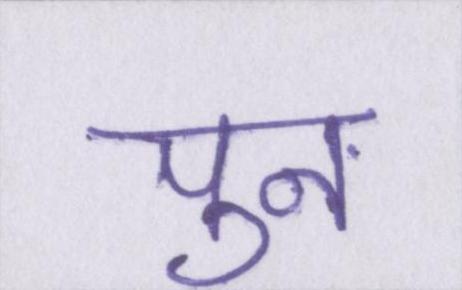 पुनः